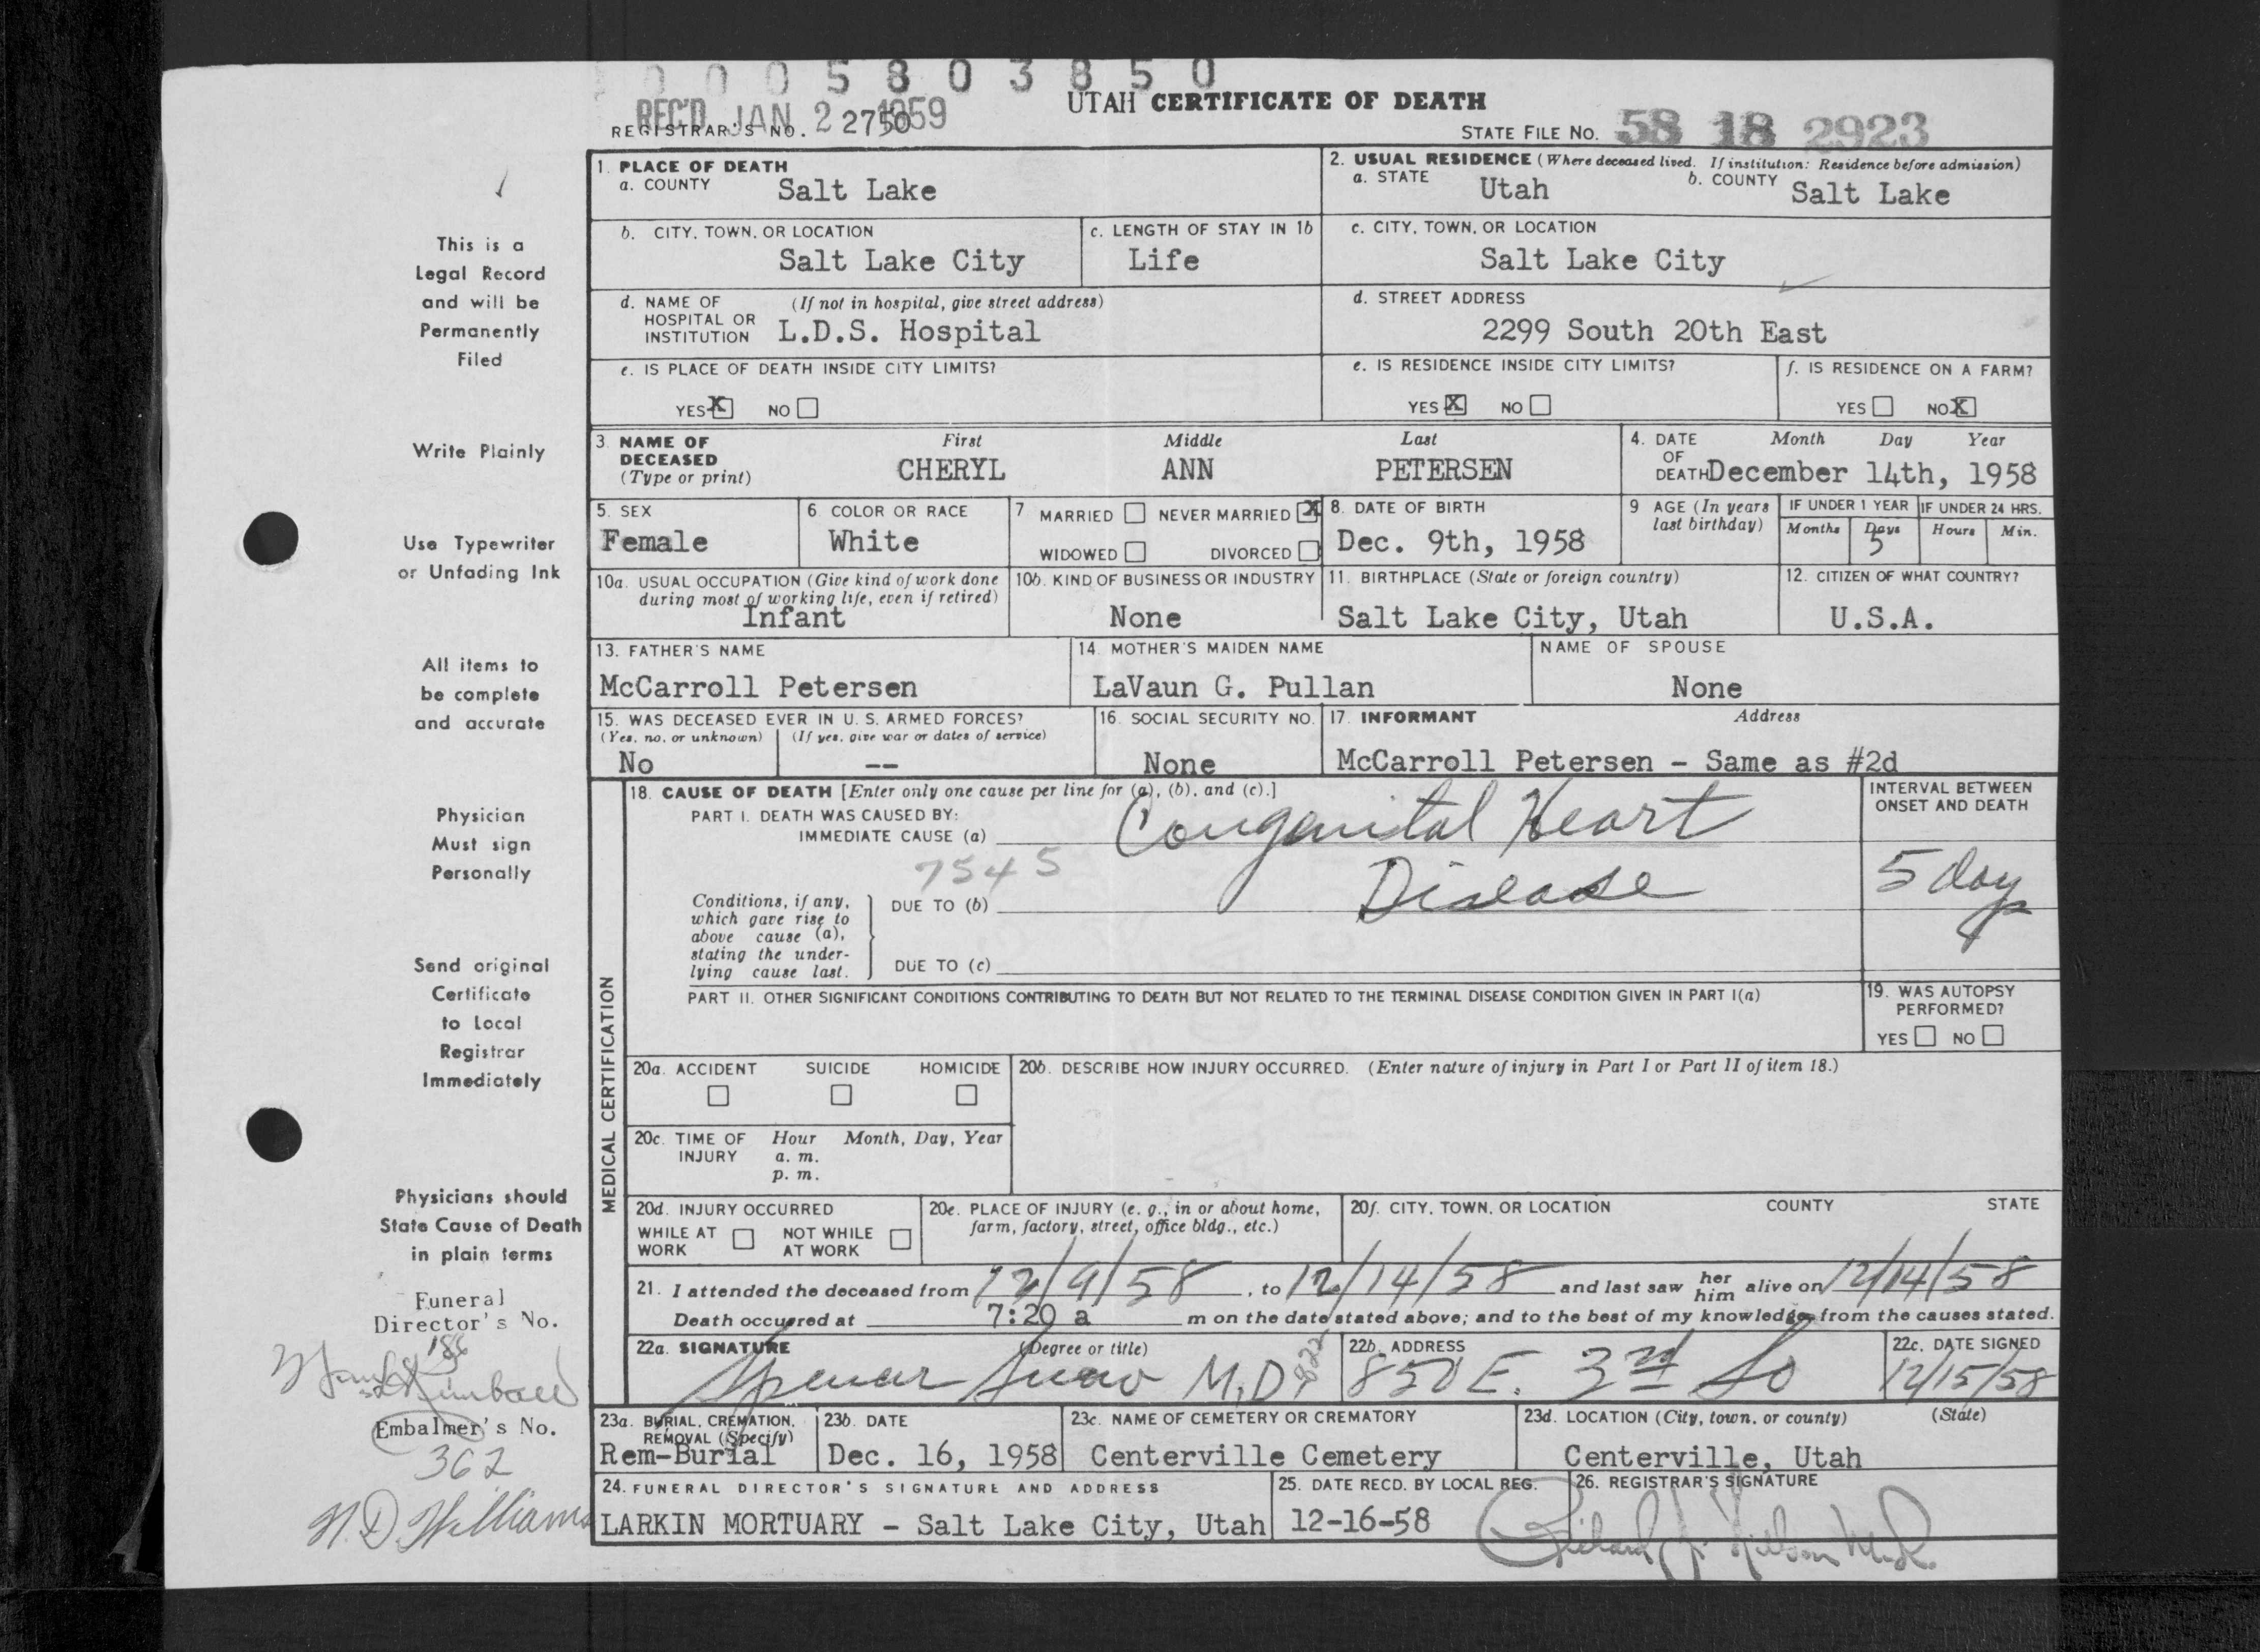 0 0 0 5 8 0 3 8 5 0
REC'D JAN 2 1959
UTAH CERTIFICATE OF DEATH
REGISTRAR'S NO. 2750
STATE FILE NO. 58 18 2923
This is a
Legal Record
and will be
Permanently
Filed
Write Plainly
Use Typewriter
or Unfading Ink
All items to
be complete
and accurate
Physician
Must sign
Personally
Send original
Certificate
to Local
Registrar
Immediately
Physicians should
State Cause of Death
in plain terms
Funeral
Director's No.
186
Kimball
Embalmer's No.
362
N.D. Williams
1. PLACE OF DEATH
a. COUNTY Salt Lake
2. USUAL RESIDENCE (Where deceased lived. If institution: Residence before admission)
a. STATE Utah b. COUNTY Salt Lake
b. CITY, TOWN, OR LOCATION
Salt Lake City
c. LENGTH OF STAY IN 1b
Life
c. CITY, TOWN, OR LOCATION
Salt Lake City
d. NAME OF (If not in hospital, give street address)
HOSPITAL OR
INSTITUTION L.D.S. Hospital
d. STREET ADDRESS
2299 South 20th East
e. IS PLACE OF DEATH INSIDE CITY LIMITS?
YES X NO
e. IS RESIDENCE INSIDE CITY LIMITS?
YES X NO
f. IS RESIDENCE ON A FARM?
YES NO X
3. NAME OF First Middle Last
DECEASED
(Type or print) CHERYL ANN PETERSEN
4. DATE Month Day Year
OF
DEATH December 14th, 1958
5. SEX
Female
6. COLOR OR RACE
White
7 MARRIED NEVER MARRIED X
WIDOWED DIVORCED
8. DATE OF BIRTH
Dec. 9th, 1958
9 AGE (In years
last birthday)
IF UNDER 1 YEAR IF UNDER 24 HRS.
Months Days Hours Min.
5
10a. USUAL OCCUPATION (Give kind of work done
during most of working life, even if retired)
Infant
10b. KIND OF BUSINESS OR INDUSTRY
None
11. BIRTHPLACE (State or foreign country)
Salt Lake City, Utah
12. CITIZEN OF WHAT COUNTRY?
U.S.A.
13. FATHER'S NAME
McCarroll Petersen
14. MOTHER'S MAIDEN NAME
LaVaun G. Pullan
NAME OF SPOUSE
None
15. WAS DECEASED EVER IN U. S. ARMED FORCES?
(Yes, no, or unknown) (If yes, give war or dates of service)
No --
16. SOCIAL SECURITY NO.
None
17. INFORMANT Address
McCarroll Petersen - Same as #2d
MEDICAL CERTIFICATION
18. CAUSE OF DEATH [Enter only one cause per line for (a), (b), and (c).]
PART I. DEATH WAS CAUSED BY:
IMMEDIATE CAUSE (a) Congenital Heart
7545
Disease
Conditions, if any,
which gave rise to
above cause (a),
stating the under-
lying cause last.
DUE TO (b)
DUE TO (c)
INTERVAL BETWEEN
ONSET AND DEATH
5 days
PART II. OTHER SIGNIFICANT CONDITIONS CONTRIBUTING TO DEATH BUT NOT RELATED TO THE TERMINAL DISEASE CONDITION GIVEN IN PART I(a)
19. WAS AUTOPSY
PERFORMED?
YES NO
20a. ACCIDENT SUICIDE HOMICIDE
20b. DESCRIBE HOW INJURY OCCURRED. (Enter nature of injury in Part I or Part II of item 18.)
20c. TIME OF Hour Month, Day, Year
INJURY a. m.
p. m.
20d. INJURY OCCURRED
WHILE AT NOT WHILE
WORK AT WORK
20e. PLACE OF INJURY (e. g., in or about home,
farm, factory, street, office bldg., etc.)
20f. CITY, TOWN, OR LOCATION COUNTY STATE
21. I attended the deceased from 12/9/58, to 12/14/58 and last saw her him alive on 12/14/58
Death occurred at 7:20 a m on the date stated above; and to the best of my knowledge from the causes stated.
22a. SIGNATURE (Degree or title)
Spencer Snow M.D.
22b. ADDRESS
850 E. 3rd So
22c. DATE SIGNED
12/15/58
23a. BURIAL, CREMATION,
REMOVAL (Specify)
Rem-Burial
23b. DATE
Dec. 16, 1958
23c. NAME OF CEMETERY OR CREMATORY
Centerville Cemetery
23d. LOCATION (City, town, or county) (State)
Centerville, Utah
24. FUNERAL DIRECTOR'S SIGNATURE AND ADDRESS
LARKIN MORTUARY - Salt Lake City, Utah
25. DATE RECD. BY LOCAL REG.
12-16-58
26. REGISTRAR'S SIGNATURE
Richard